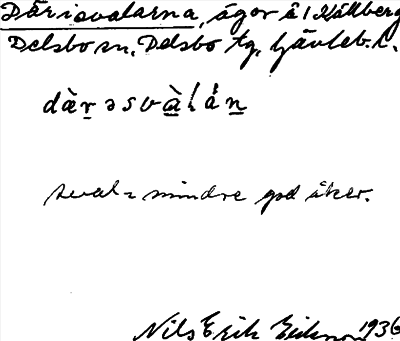 Därisvalarna, ägor å 1 Källberg
Delsbo sn, Delsbo tg, Gävleb. l.
dàr̲əsvà̲lán̲
sval = mindre god åker.
Nils Erik 1936